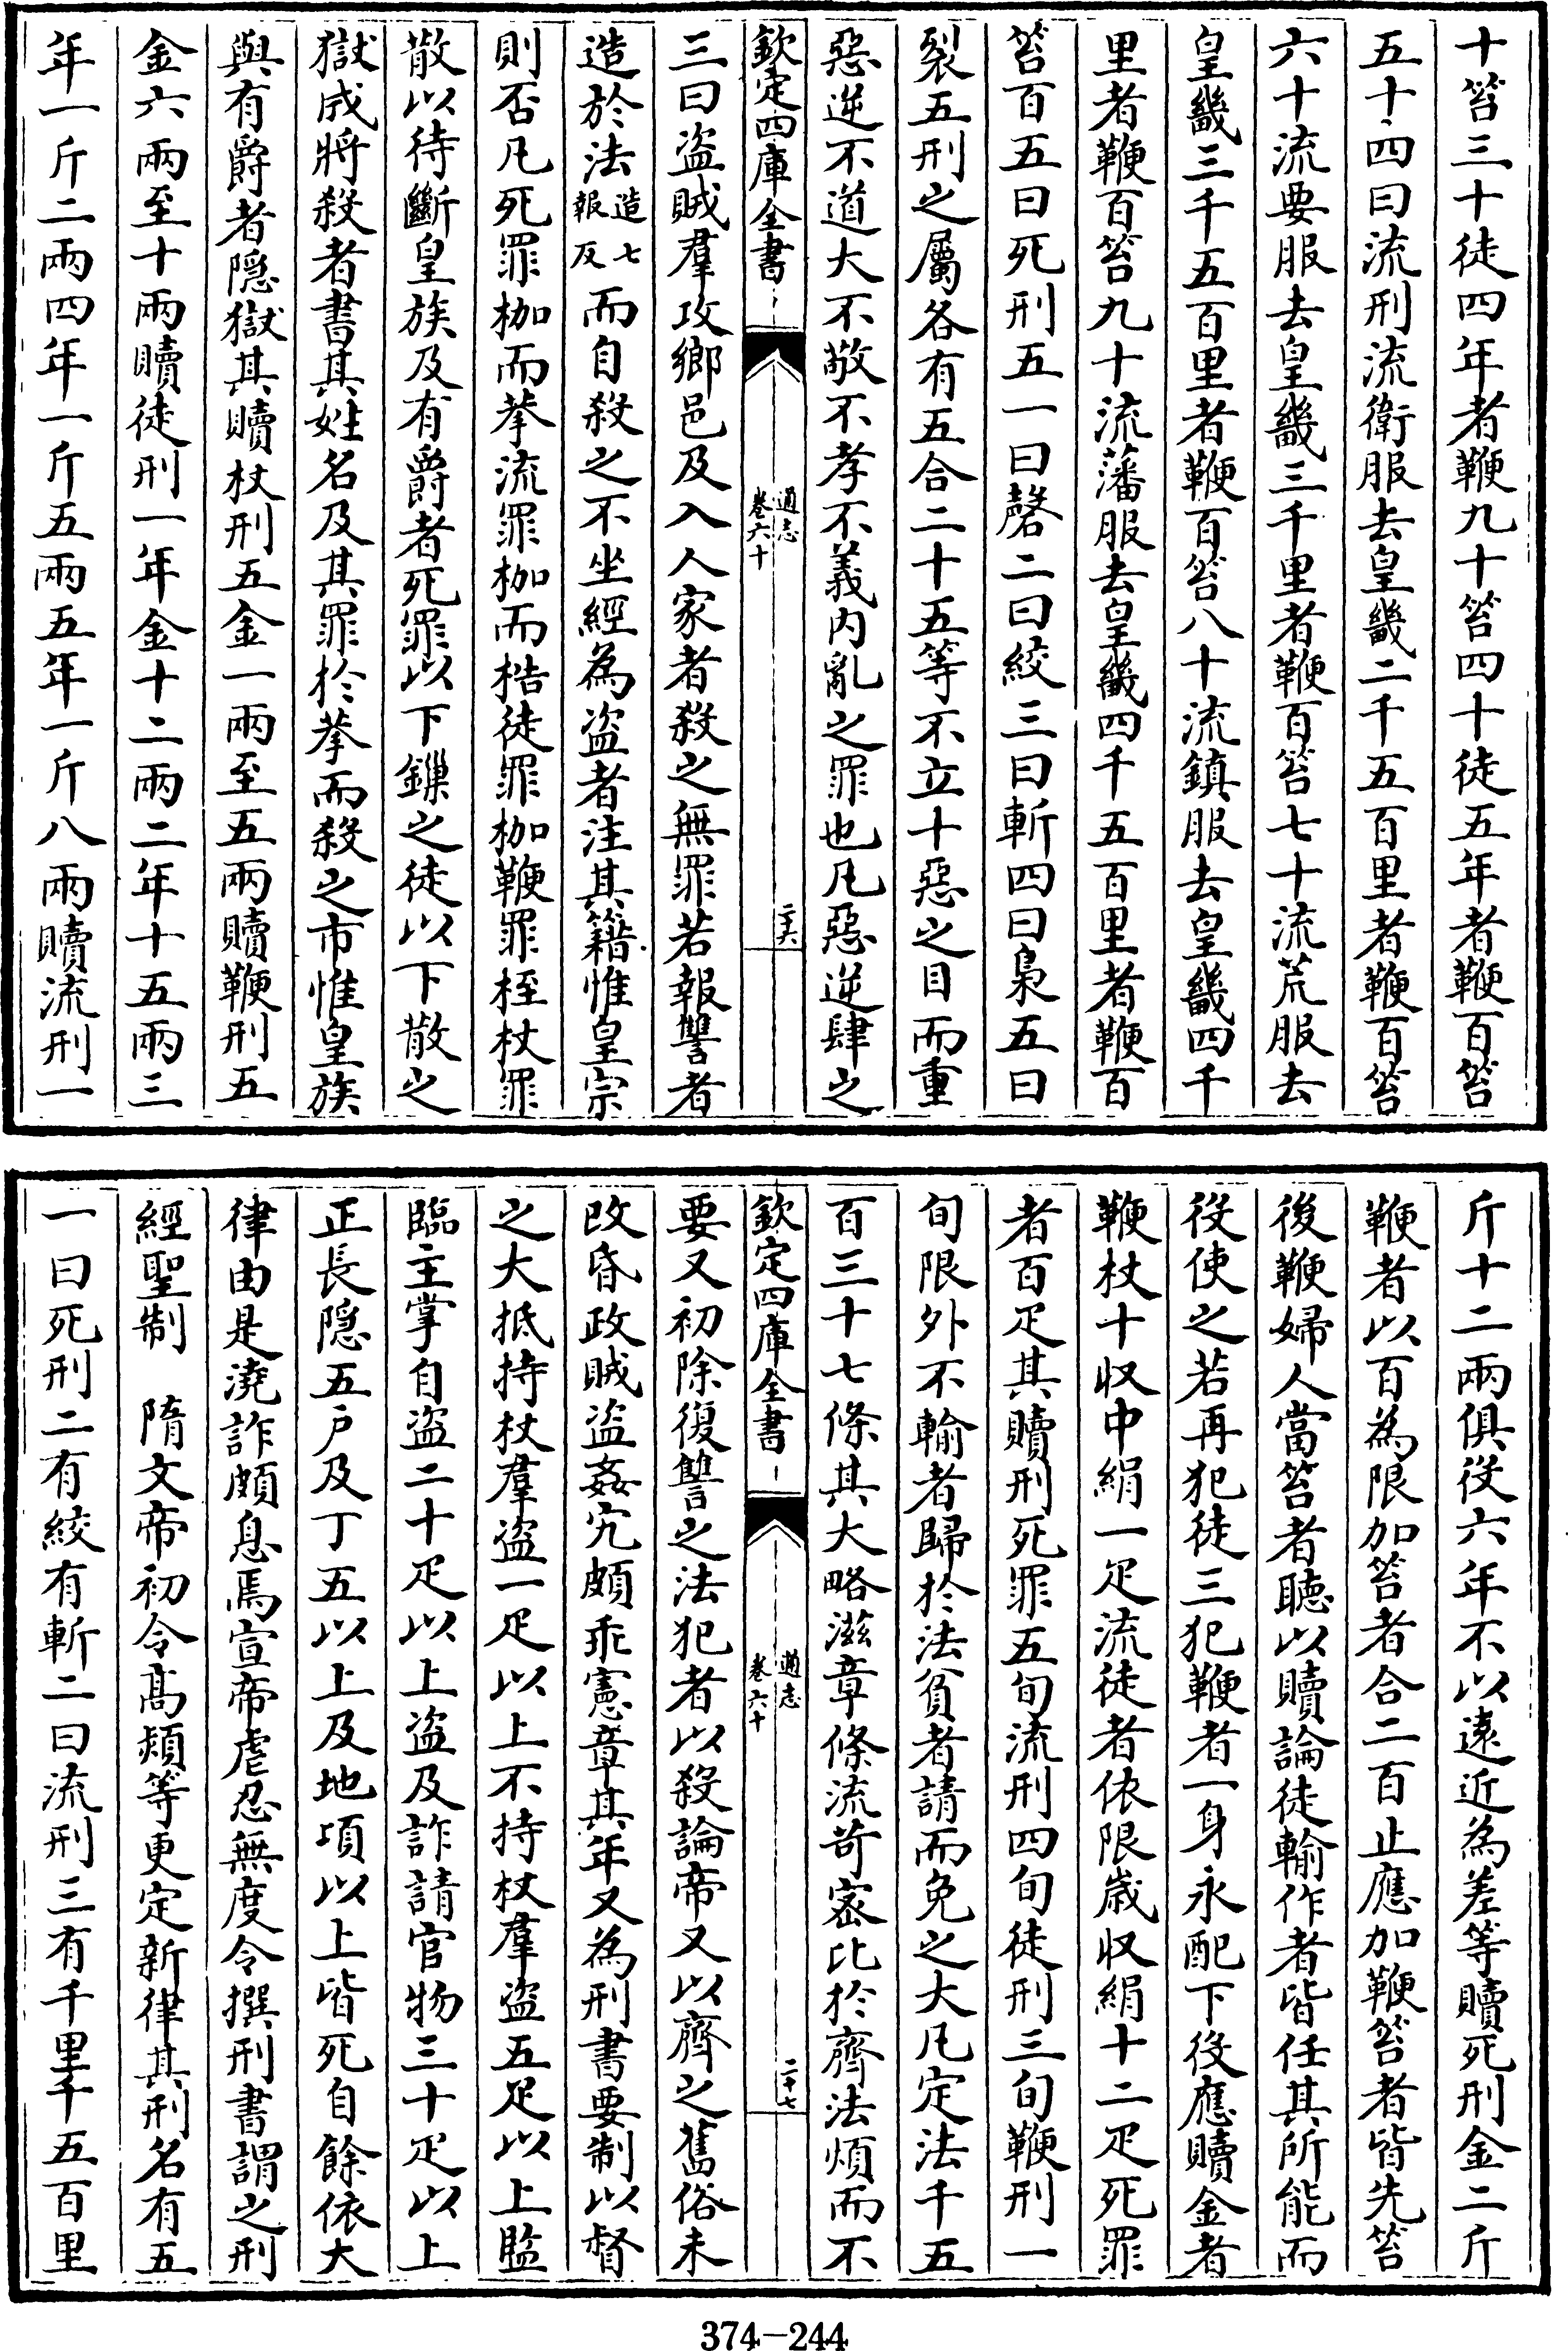 十笞三十徒四年者鞭九十笞四十徒五年者鞭百笞
五十四曰流刑流衛服去皇畿二千五百里者鞭百笞
六十流要服去皇畿三千里者鞭百笞七十流荒服去
皇畿三千五百里者鞭百笞八十流鎮服去皇畿四千
里者鞭百笞九十流藩服去皇畿四千五百里者鞭百
笞百五曰死刑五一曰磬二曰絞三曰斬四曰梟五曰
裂五刑之屬各有五合二十五等不立十惡之目而重
惡逆不道大不敬不孝不義内亂之罪也凡惡逆肆之
欽定四庫全書
通志
卷六十
二十六
三曰盜賊羣攻鄉邑及入人家者殺之無罪若報讐者
造於法造七報反而自殺之不坐經為盜者注其籍惟皇宗
則否凡死罪枷而拲流罪枷而梏徒罪枷鞭罪桎杖罪
散以待斷皇族及有爵者死罪以下鏁之徒以下散之
獄成將殺者書其姓名及其罪於拲而殺之市惟皇族
與有爵者隠獄其贖杖刑五金一兩至五兩贖鞭刑五
金六兩至十兩贖徒刑一年金十二兩二年十五兩三
年一斤二兩四年一斤五兩五年一斤八兩贖流刑一
斤十二兩俱役六年不以遠近為差等贖死刑金二斤
鞭者以百為限加笞者合二百止應加鞭笞者皆先笞
後鞭婦人當笞者聽以贖論徒輸作者皆任其所能而
役使之若再犯徒三犯鞭者一身永配下役應贖金者
鞭杖十収中絹一疋流徒者依限嵗収絹十二疋死罪
者百疋其贖刑死罪五旬流刑四旬徒刑三旬鞭刑一
旬限外不輸者歸於法貧者請而免之大凡定法千五
百三十七條其大略滋章條流苛密比於齊法煩而不
欽定四庫全書
通志
卷六十
二十七
要又初除復讐之法犯者以殺論帝又以齊之舊俗未
改昏政賊盜姦宄頗乖憲章其年又為刑書要制以督
之大抵持杖羣盜一疋以上不持杖羣盜五疋以上監
臨主掌自盜二十疋以上盜及詐請官物三十疋以上
正長隠五户及丁五以上及地頃以上皆死自餘依大
律由是澆詐頗息焉宣帝虐忍無度令撰刑書謂之刑
經聖制　隋文帝初令髙熲等更定新律其刑名有五
一曰死刑二有絞有斬二曰流刑三有千里千五百里
374-244